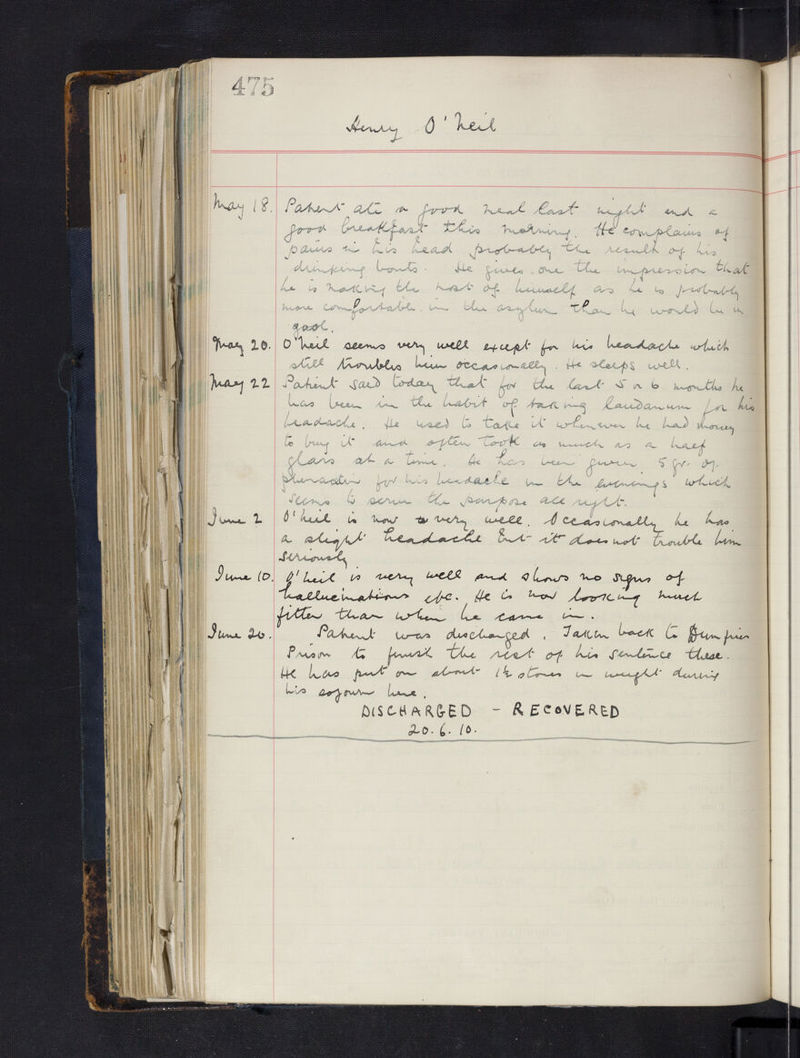 475
Henry O'Neil
May 18. Patient ate a good meal last night and a
good breakfast this morning. He complains of
pains in his head probably the result of his
drinking bouts. He gives one the impression that
he is making the most of himself as he is probably
more comfortable in the asylum than he would be in
gaol.
May 20. O'Neil seems very well except for his headache which
still troubles him occasionally. He sleeps well.
May 22 Patient said today that for the last 5 or 6 months he
has been in the habit of taking laudanum for his
headache. He used to take it whenever he had money
to buy it and often took as much as a half
glass at a time. He has been given 5 gr. of
phenacetin for his headache in the evenings which
seems to serve the purpose all right.
June 2 O'Neil is now very well. Occasionally he has
a slight headache but it does not trouble him
seriously
June 10. O'Neil is very well and shows no signs of
hallucinations etc. He is now looking much
fitter than when he came in.
June 20. Patient was discharged. Taken back to Dumfries
Prison to finish the rest of his sentence there.
He has put on about 1½ stones in weight during
his sojourn here.
DISCHARGED - RECOVERED
20.6.10.